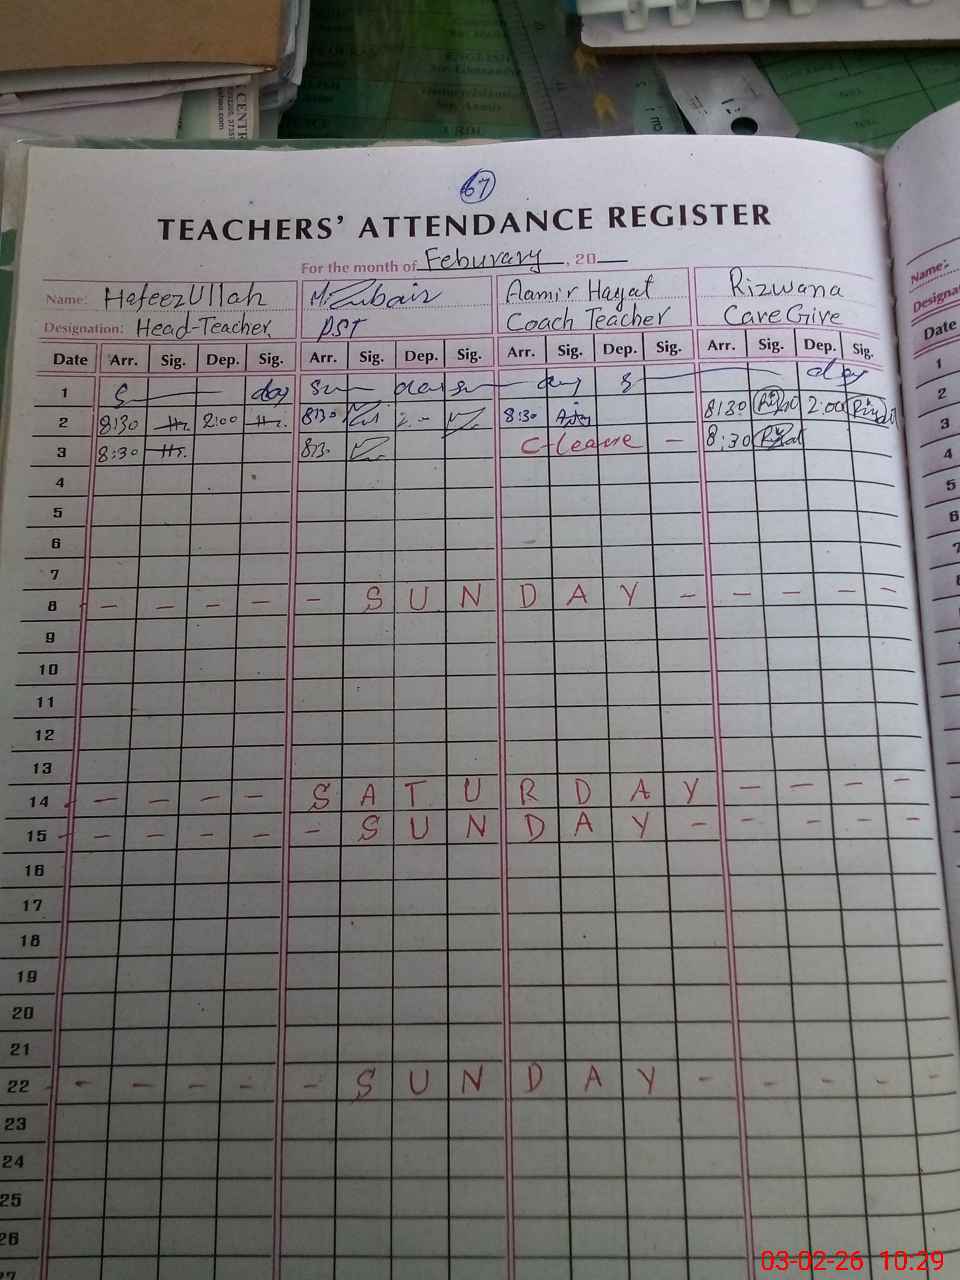 67
TEACHERS' ATTENDANCE REGISTER
For the month of Feburary, 20
Name: HafeezUllah M. Zubair Aamir Hayat Rizwana
Designation: Head-Teacher PST Coach Teacher Care Give
Date Arr. Sig. Dep. Sig. Arr. Sig. Dep. Sig. Arr. Sig. Dep. Sig. Arr. Sig. Dep. Sig.
1 S day Sun day Sun day S day
2 8:30 2:00 8:30 8:30 8:30 2:00
3 8:30 8:30 C-leave - 8:30
4
5
6
7
8 - - - - - S U N D A Y - - - - -
9
10
11
12
13
14 - - - - S A T U R D A Y - - - -
15 - - - - - S U N D A Y - - - - -
16
17
18
19
20
21
22 - - - - - S U N D A Y - - - - -
23
24
25
26
27
Name:
Date
1
2
3
4
5
6
7
8
9
10
11
12
CENTRE
ENGLISH
URDU
03-02-26 10:29